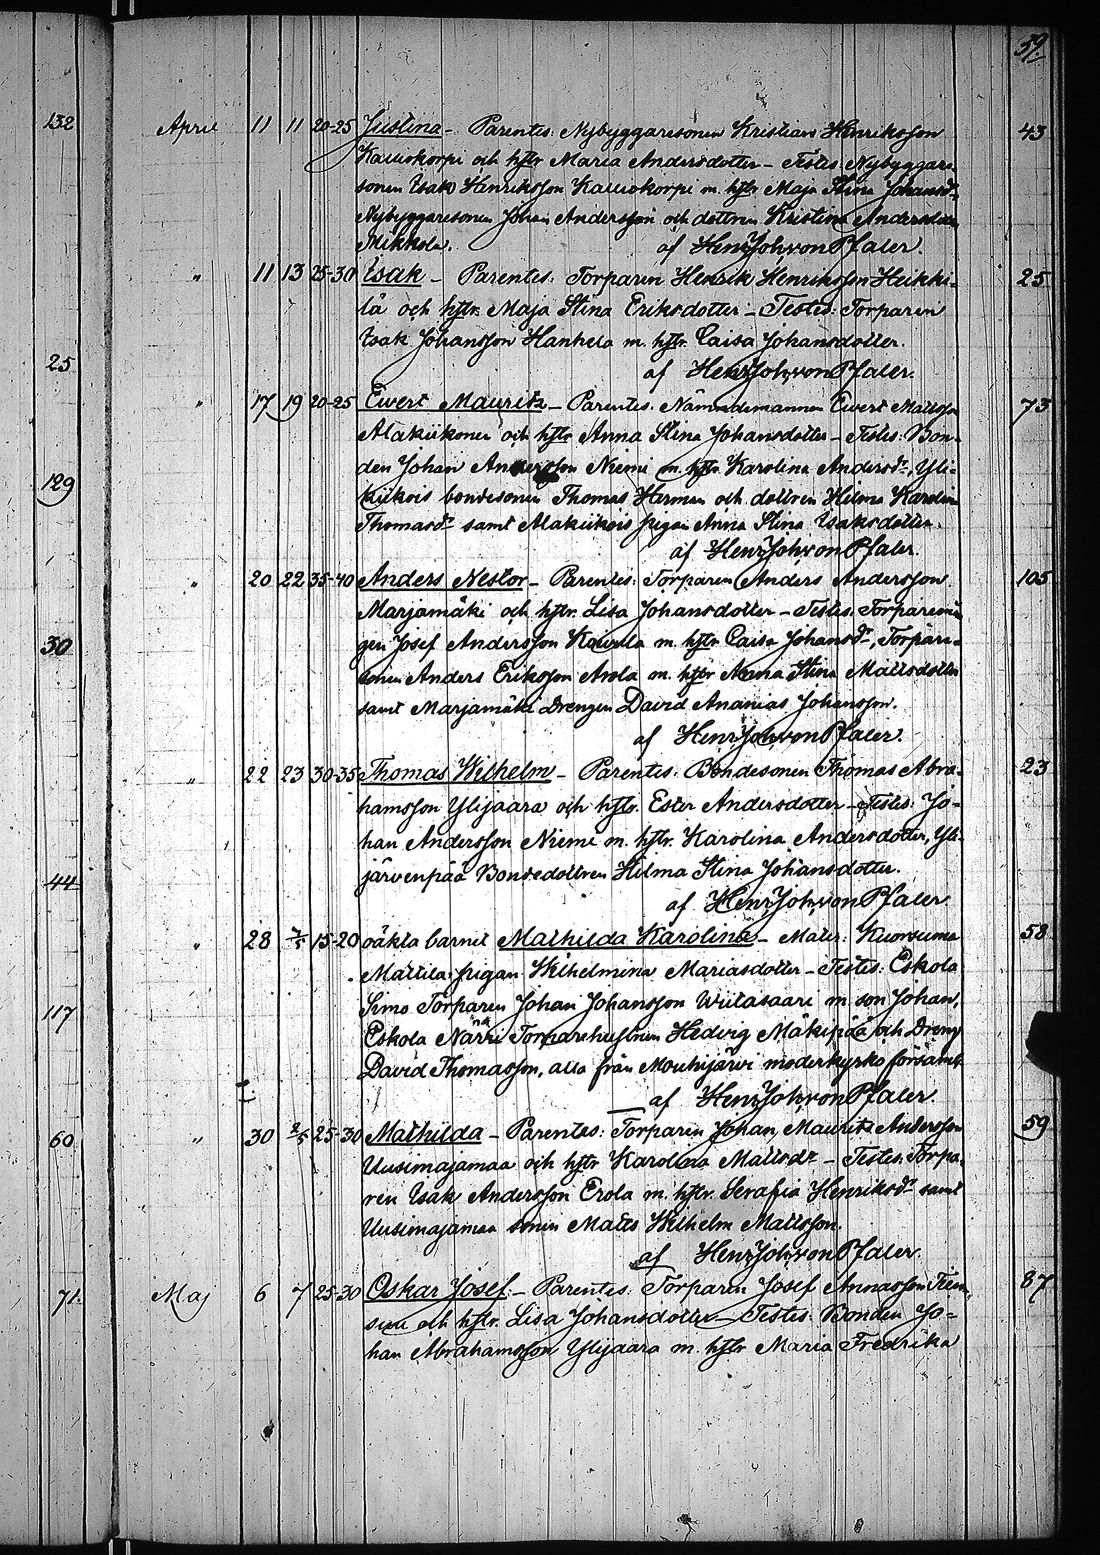 59.
132
April 11 11 20-25 Justina – Parentes: Nybyggaresonen Kristian Henriksson 43
Kalliokorpi och hstr Maria Andersdotter – Testes: Nybyggare
sonen Isak Henriksson Kalliokorpi m. hstr Maja Stina Johansdr,
Nybyggaresonen Johan Andersson och dottren Kristina Andersdotter
Mikkola. af Henr. Joh. von Pfaler.
" 11 13 25-30 Isak – Parentes: Torparen Henrik Henriksson Heikki- 25
lä och hstr. Maja Stina Eriksdotter – Testes: Torparen
Isak Johansson Hanhela m. hstr. Caisa Johansdotter.
25
af Henr. Joh. von Pfaler.
" 17 19 20-25 Ewert Mauritz – Parentes: Nämndemannen Ewert Mattson 73
Alakiikonen och hstr Anna Stina Johansdotter – Testes: Bon-
den Johan Andersson Niemi m. hstr Karolina Andersdr, Yli-
129
kiikois bondesonen Thomas Herman och dottren Hilma Karolin
Thomasdr samt Alakiikois pigan Anna Stina Isaksdotter.
af Henr. Joh. von Pfaler.
" 20 22 35-40 Anders Nestor – Parentes: Torparen Anders Andersson 105
Marjamäki och hstr. Lisa Johansdotter – Testes: Torparemå
30
gen Josef Andersson Kaurala m. hstr Caisa Johansdr, Torpare-
sonen Anders Eriksson Arola m. hstr Anna Stina Mattsdotter
samt Marjamäki drengen David Ananias Johansson.
af Henr. Joh. von Pfaler.
" 22 23 30-35 Thomas Wilhelm – Parentes: Bondesonen Thomas Abra- 23
hamsson Ylijaara och hstr. Ester Andersdotter – Testes: Jo-
han Andersson Niemi m. hstr. Karolina Andersdotter, Yli-
järvenpää Bondedottren Hilma Stina Johansdotter.
44
af Henr. Joh. von Pfaler
" 28 7/5 15-20 oäkta barnet Mathilda Karolina – Mater: Kuorsuma 58
Mattila pigan Wilhelmina Mariasdotter – Testes: Eskola
Simo Torparen Johan Johansson Wiitasaari m. son Johan,
117
Eskola Närri Torparehustrun Hedvig Mäkipää och Dreng
David Thomasson, alla från Mouhijärvi moderkyrko församl.
af Henr. Joh. von Pfaler
60
" 30 2/5 25-30 Mathilda – Parentes: Torparen Johan Mauritz Andersson 59
Uusimajamaa och hstr Karolina Mattsdr – Testes: Torpa-
ren Isak Andersson Erola m. hstr. Serafia Henriksdr samt
Uusimajamaa sonen Matts Wilhelm Mattsson.
af Henr. Joh. von Pfaler
71.
Maj 6 7 25-30 Oskar Josef – Parentes: Torparen Josef Annasson 87
och hstr. Lisa Johansdotter – Testes: Bonden Jo-
han Abrahamsson Ylijaara m. hstr Maria Fredrika